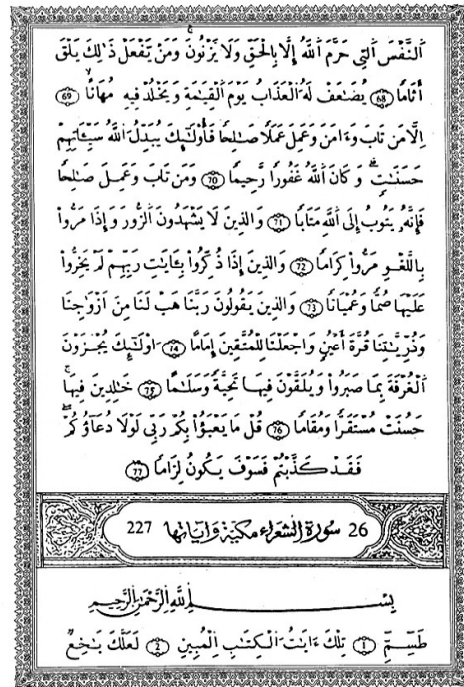 اَ۬لنَّفْسَ اَ۬لتِے حَرَّمَ اَ۬للَّهُ إِلَّا بِالْحَقِّ وَلَا يَزْنُونَ وَمَنْ يَّفْعَلْ ذَٰلِكَ يَلْقَ
أَثَاماٗ 68 يُضَٰعَفْ لَهُ اُ۬لْعَذَابُ يَوْمَ اَ۬لْقِيَٰمَةِ وَيَخْلُدْ فِيهِ مُهَاناً 69
اِلَّا مَن تَابَ وَءَامَنَ وَعَمِلَ عَمَلاٗ صَٰلِحاٗ فَأُوْلَٰٓئِكَ يُبَدِّلُ اُ۬للَّهُ سَيِّـَٔاتِهِمْ
حَسَنَٰتٖ وَكَانَ اَ۬للَّهُ غَفُوراٗ رَّحِيماٗ 70 وَمَن تَابَ وَعَمِلَ صَٰلِحاٗ
فَإِنَّهُۥ يَتُوبُ إِلَى اَ۬للَّهِ مَتَاباٗ 71 وَالذِينَ لَا يَشْهَدُونَ اَ۬لزُّورَ وَإِذَا مَرُّواْ
بِاللَّغْوِ مَرُّواْ كِرَاماٗ 72 وَالذِينَ إِذَا ذُكِّرُواْ بِـَٔايَٰتِ رَبِّهِمْ لَمْ يَخِرُّواْ
عَلَيْهَا صُمّاٗ وَعُمْيَاناٗ 73 وَالذِينَ يَقُولُونَ رَبَّنَا هَبْ لَنَا مِنَ اَزْوَٰجِنَا
وَذُرِّيَّٰتِنَا قُرَّةَ أَعْيُنٖ وَاجْعَلْنَا لِلْمُتَّقِينَ إِمَاماً 74 اُوْلَٰٓئِكَ يُجْزَوْنَ
اَ۬لْغُرْفَةَ بِمَا صَبَرُواْ وَيُلَقَّوْنَ فِيهَا تَحِيَّةٗ وَسَلَٰماً 75 خَٰلِدِينَ فِيهَا
حَسُنَتْ مُسْتَقَرّاٗ وَمُقَاماٗ 76 قُلْ مَا يَعْبَؤُاْ بِكُمْ رَبِّے لَوْلَا دُعَآؤُكُمْ
فَقَد كَذَّبْتُمْ فَسَوْفَ يَكُونُ لِزَاماٗ 77
26 سورة الشعراء مكية وآياتها 227
بِسْمِ اِ۬للَّهِ اِ۬لرَّحْمَٰنِ اِ۬لرَّحِيمِ
طَسِٓمِّٓ 1 تِلْكَ ءَايَٰتُ اُ۬لْكِتَٰبِ اِ۬لْمُبِينِ 2 لَعَلَّكَ بَٰخِعٞ